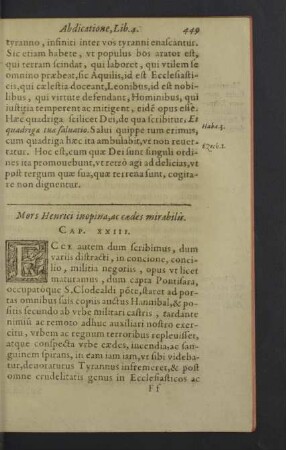 Abdicatione, Lib. 4. 449
tyranno, infiniti inter vos tyranni enascantur.
Sic etiam habete, vt populus bos arator est,
qui terram scindat, qui laboret, qui vtilem se
omnino præbeat, sic Aquilis, id est Ecclesiasti-
cis, qui cælestia doceant, Leonibus, id est nobi-
libus, qui virtute defendant, Hominibus, qui
iustitia temperent ac mitigent, eidē opus esse.
Hæc quadriga scilicet Dei, de qua scribitur. Et
quadriga tua saluatio. Salui quippe tum erimus,
cum quadriga hæc ita ambulabit, vt non reuer-
tatur. Hoc est, cum quæ Dei sunt singuli ordi-
nes ita promouebunt, vt retrò agi ad delicias, vt
post tergum quæ sua, quæ terrena sunt, cogita-
re non dignentur.
Habac. 3.
Ezech. 1.
Mors Henrici inopina, ac cædes mirabilis.
CAP. XXIII.
ECCE autem dum scribimus, dum
variis distracti, in concione, conci-
lio, militiæ negotiis, opus vt licet
maturamus, dum capta Pontisara,
occupatoque S. Clodoaldi pōte, staret ad por-
tas omnibus suis copiis auctus Hannibal, & po-
sitis secundo ab vrbe miliari castris, tardante
nimiū ac remoto adhuc auxiliari nostro exer-
citu, vrbem ac regnum terroribus repleuisset,
atque conspecta vrbe cædes, incendia, ac san-
guinem spirans, in eam iam iam, vt sibi videba-
tur, deuoraturus Tyrannus infremeret, & post
omne crudelitatis genus in Ecclesiasticos ac
Ff